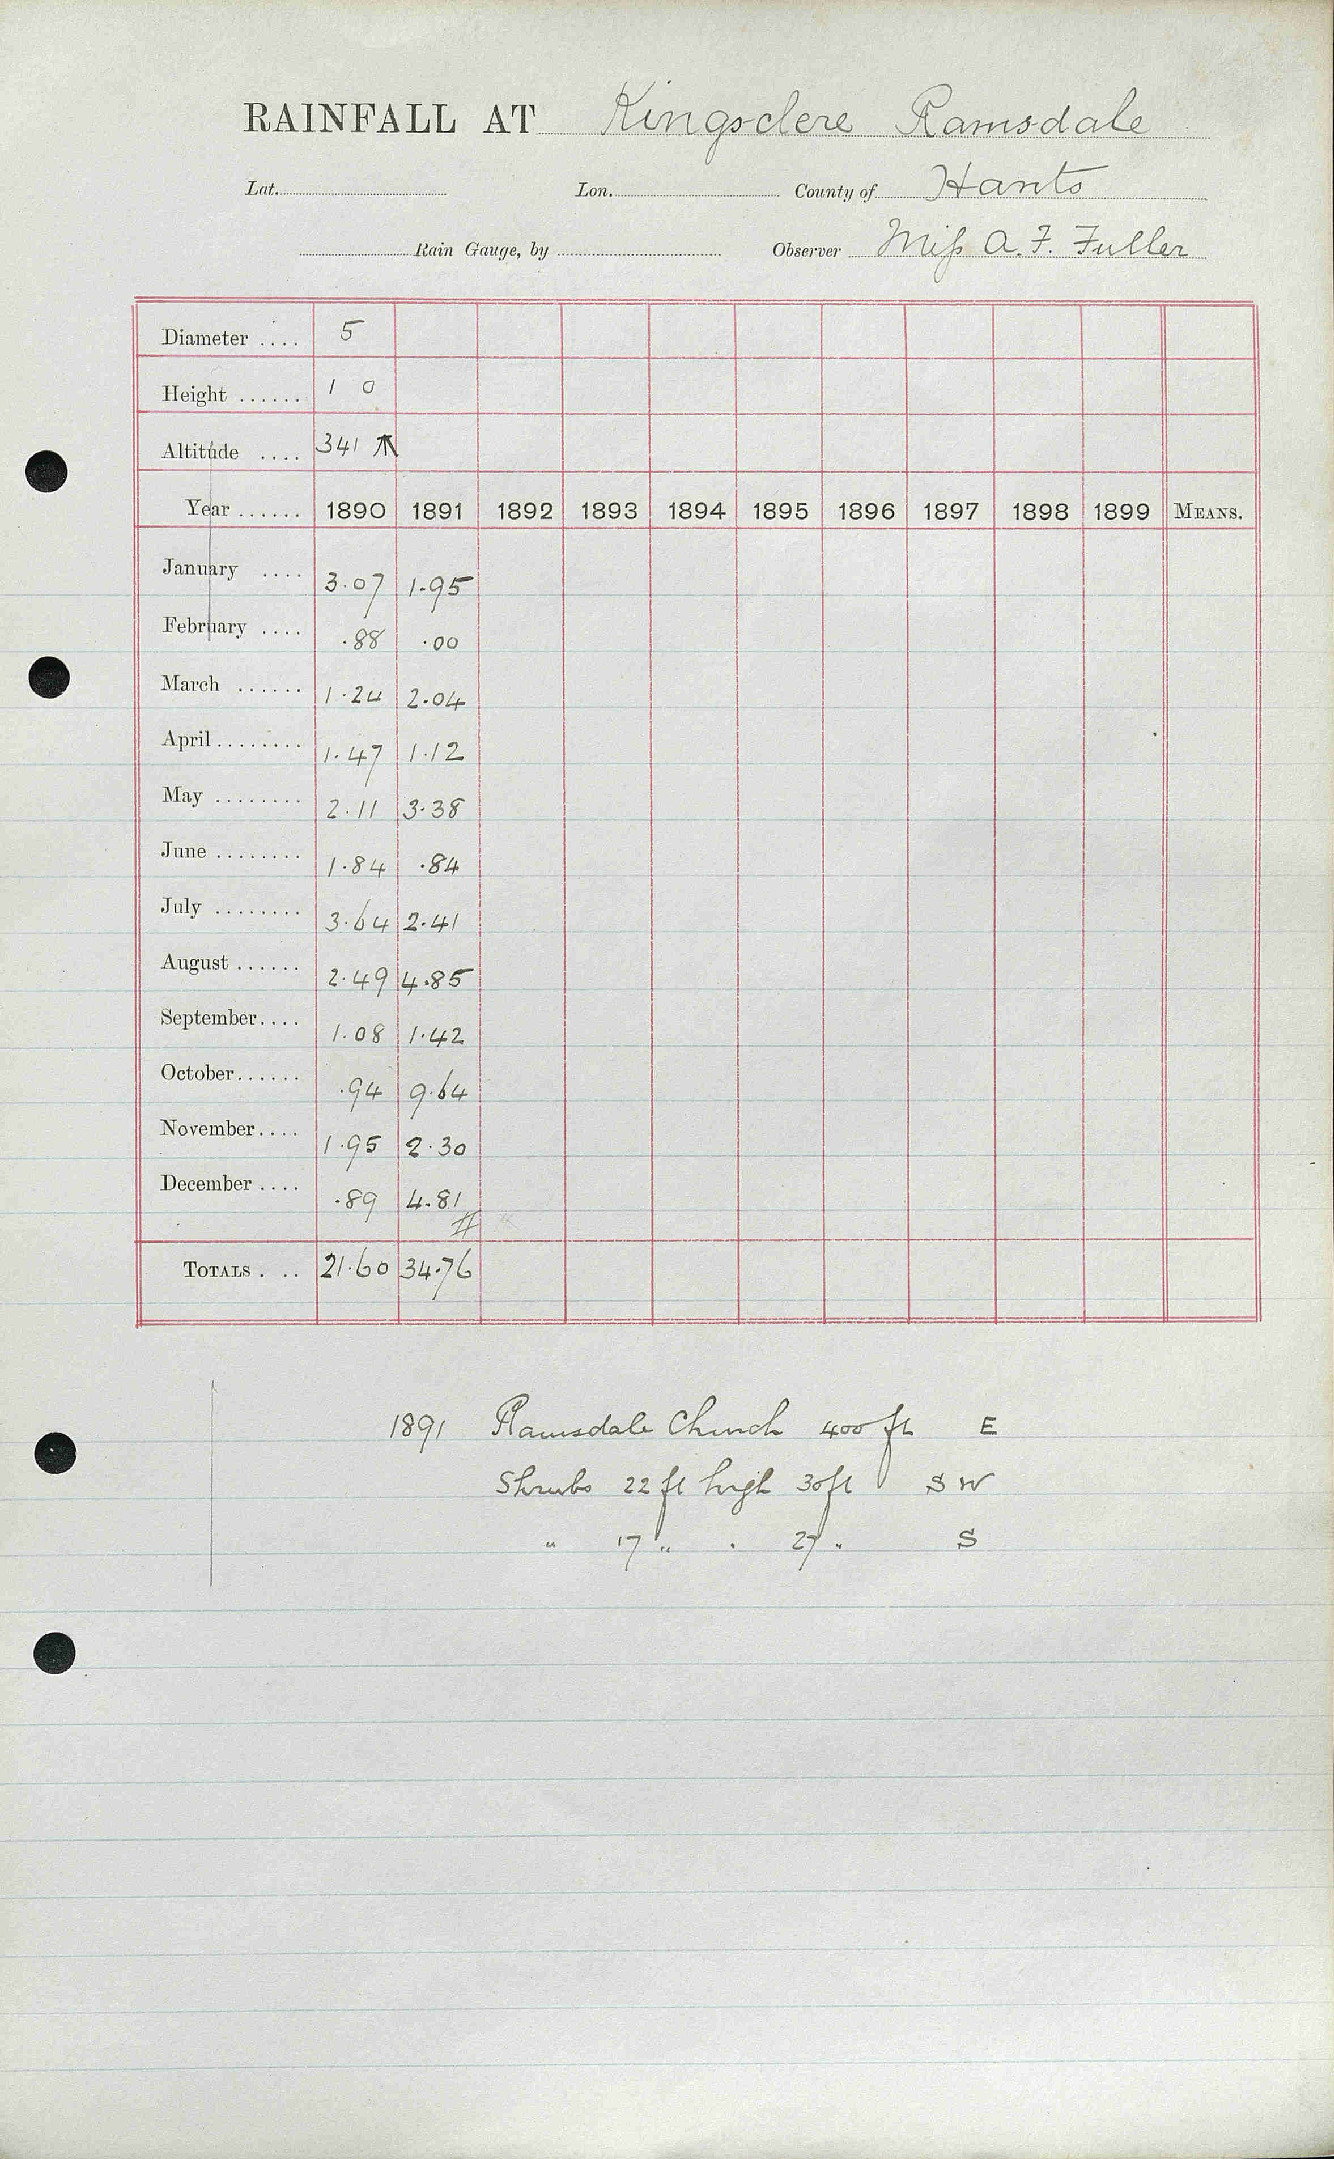 RAINFALL AT Kingsclere Ramsdale
Lat. Lon. County of Hants
Rain Gauge, by Observer Miss A. F. Fuller
Diameter .... 5
Height ...... 1 0
Altitude .... 341
Year ...... 1890 1891 1892 1893 1894 1895 1896 1897 1898 1899 MEANS.
January .... 3.07 1.95
February .... .88 .00
March ...... 1.24 2.04
April ........ 1.47 1.12
May ........ 2.11 3.38
June ........ 1.84 .84
July ........ 3.64 2.41
August ...... 2.49 4.85
September .... 1.08 1.42
October ...... .94 9.64
November .... 1.95 2.30
December .... .89 4.81
TOTALS . .. 21.60 34.76
1891 Ramsdale Church 400 ft E
Shrubs 22 ft high 30 ft SW
" 17 " " 27 " S